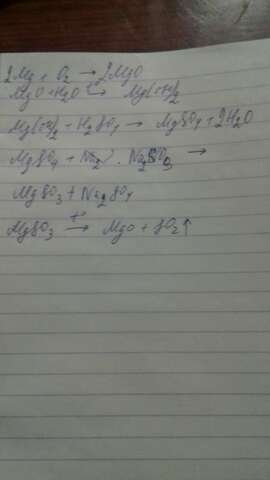 2Mg + O₂ → 2MgO
MgO + H₂O → Mg(OH)₂
Mg(OH)₂ + H₂SO₄ → MgSO₄ + 2H₂O
MgSO₄ + Na₂SO₃ →
MgSO₃ + Na₂SO₄
MgSO₃ →(t°) MgO + SO₂↑